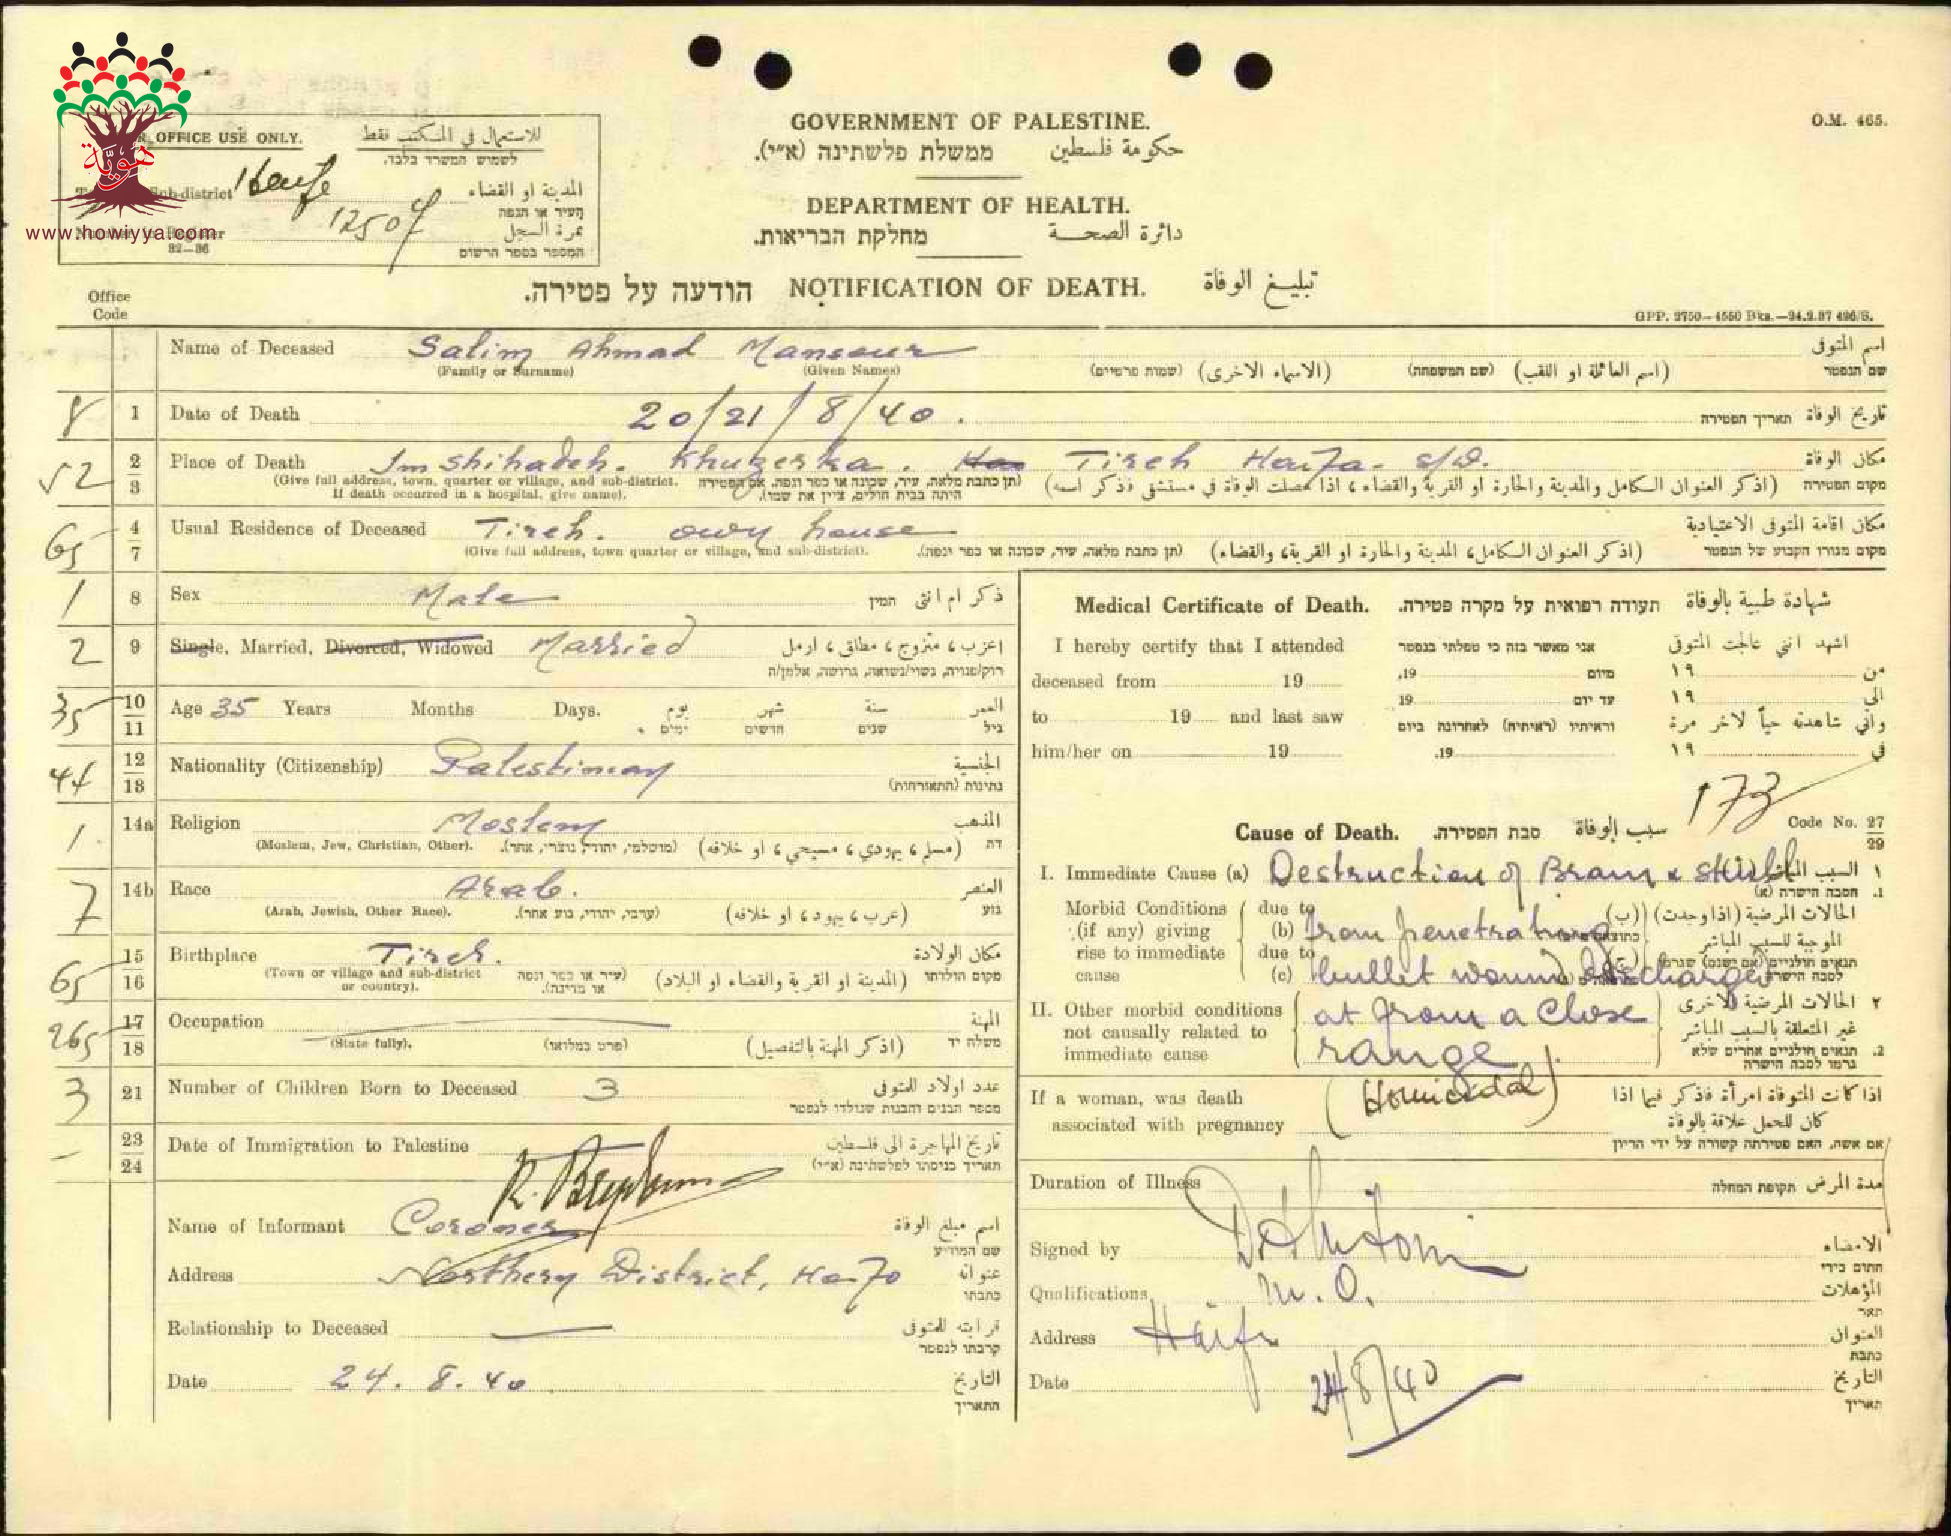 GOVERNMENT OF PALESTINE.
ממשלת פלשתינה (א״י). حكومة فلسطين
O.M. 465.
DEPARTMENT OF HEALTH.
מחלקת הבריאות. دائرة الصحة
OFFICE USE ONLY. للاستعمال في المكتب فقط
לשמוש המשרד בלבד.
Sub-district Haifa المدينة او القضاء
העיר או הנפה
12507 نمرة السجل
32—36 המספר בספר הרשום
هوية
www.howiyya.com
הודעה על פטירה. NOTIFICATION OF DEATH. تبليغ الوفاة
Office
Code
GPP. 2750—4550 Bks.—24.2.37 426/S.
Name of Deceased Salim Ahmad Mansour اسم المتوفى
(Family or Surname) (Given Names) (שמות פרטיים) (الاسماء الاخرى) (שם המשפחה) (اسم العائلة او اللقب) שם הנפטר
8 1 Date of Death 20/21/8/40. תאריך הפטירה تاريخ الوفاة
52 2 3 Place of Death Im Shihadeh. Khuzerka. Tireh Haifa. s/d. مكان الوفاة
(Give full address, town, quarter or village, and sub-district. (תן כתבת מלאה, עיר, שכונה או כפר ונפה, אם הפטירה (اذكر العنوان الكامل والمدينة والحارة او القرية والقضاء، اذا حصلت الوفاة في مستشفى فذكر اسمه) מקום הפטירה
If death occurred in a hospital, give name). היתה בבית חולים, ציין את שמו).
65 4 7 Usual Residence of Deceased Tireh. own house مكان اقامة المتوفى الاعتيادية
(Give full address, town quarter or village, and sub-district). (תן כתבת מלאה, עיר, שכונה או כפר ונפה). (اذكر العنوان الكامل، المدينة والحارة او القرية، والقضاء) מקום מגורו הקבוע של הנפטר
1 8 Sex Male המין ذكر ام انثى
2 9 Single, Married, Divorced, Widowed Married اعزب، متزوج، مطلق، ارمل
רוק/פנויה, נשוי/נשואה, גרושה, אלמן/ה
35 10 11 Age 35 Years Months Days. يوم شهر سنة العمر
ימים. חדשים שנים גיל
44 12 18 Nationality (Citizenship) Palestinian الجنسية
נתינות (התאזרחות)
1. 14a Religion Moslem المذهب
(Moslem, Jew, Christian, Other). (מושלמי, יהודי, נוצרי, אחר). (مسلم، يهودي، مسيحي، او خلافه) דת
7 14b Race Arab. العنصر
(Arab, Jewish, Other Race). (ערבי, יהודי, גזע אחר). (عرب، يهود، او خلافه) גזע
65 15 16 Birthplace Tireh. مكان الولادة
(Town or village and sub-district (עיר או כפר ונפה (المدينة او القرية والقضاء او البلاد) מקום הולדתו
or country). או מדינה).
265 17 18 Occupation المهنة
(State fully). (פרט במלואו) (اذكر المهنة بالتفصيل) משלח יד
3 21 Number of Children Born to Deceased 3 عدد اولاد المتوفى
מספר הבנים והבנות שנולדו לנפטר
— 23 24 Date of Immigration to Palestine تاريخ المهاجرة الى فلسطين
תאריך כניסתו לפלשתינה (א״י)
Name of Informant Coroner اسم مبلغ الوفاة
שם המודיע
Address Northern District, Haifa عنوانه
כתבתו
Relationship to Deceased — قرابته للمتوفى
קרבתו לנפטר
Date 24.8.40 التاريخ
התאריך
Medical Certificate of Death. תעודה רפואית על מקרה פטירה. شهادة طبية بالوفاة
I hereby certify that I attended אני מאשר בזה כי טפלתי בנפטר اشهد انني عالجت المتوفى
deceased from 19 19, מיום ١٩ من
to 19 and last saw 19 עד יום ١٩ الى
וראיתיו (ראיתיה) לאחרונה ביום واني شاهدته حياً لآخر مرة
him/her on 19 19. ١٩ في
173
Cause of Death. סבת הפטירה. سبب الوفاة Code No. 27 29
I. Immediate Cause (a) Destruction of Brain & skull السبب المباشر ١
הסבה הישרה (א) 1.
Morbid Conditions due to الحالات المرضية (اذا وجدت) (ب)
(if any) giving (b) from penetrating الموجبة للسبب المباشر
rise to immediate due to
cause (c) bullet wound discharged לסבה הישרה
II. Other morbid conditions at from a close الحالات المرضية الاخرى ٢
not causally related to غير المتعلقة بالسبب المباشر
immediate cause range תנאים חולניים אחרים שלא 2.
גרמו לסבה הישרה
If a woman, was death (Homicidal) اذا كانت المتوفاة امرأة فذكر فيما اذا
associated with pregnancy كان للحمل علاقة بالوفاة
אם אשה, האם פטירתה קשורה על ידי הריון
Duration of Illness תקופת המחלה مدة المرض
Signed by الامضاء
חתום בידי
Qualifications M.O. المؤهلات
תאר
Address Haifa العنوان
כתבת
Date 24/8/40 التاريخ
תאריך